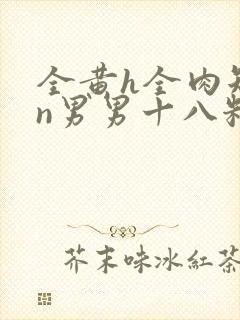 全黄h全肉短
n男男十八粗
芥末味冰紅茶